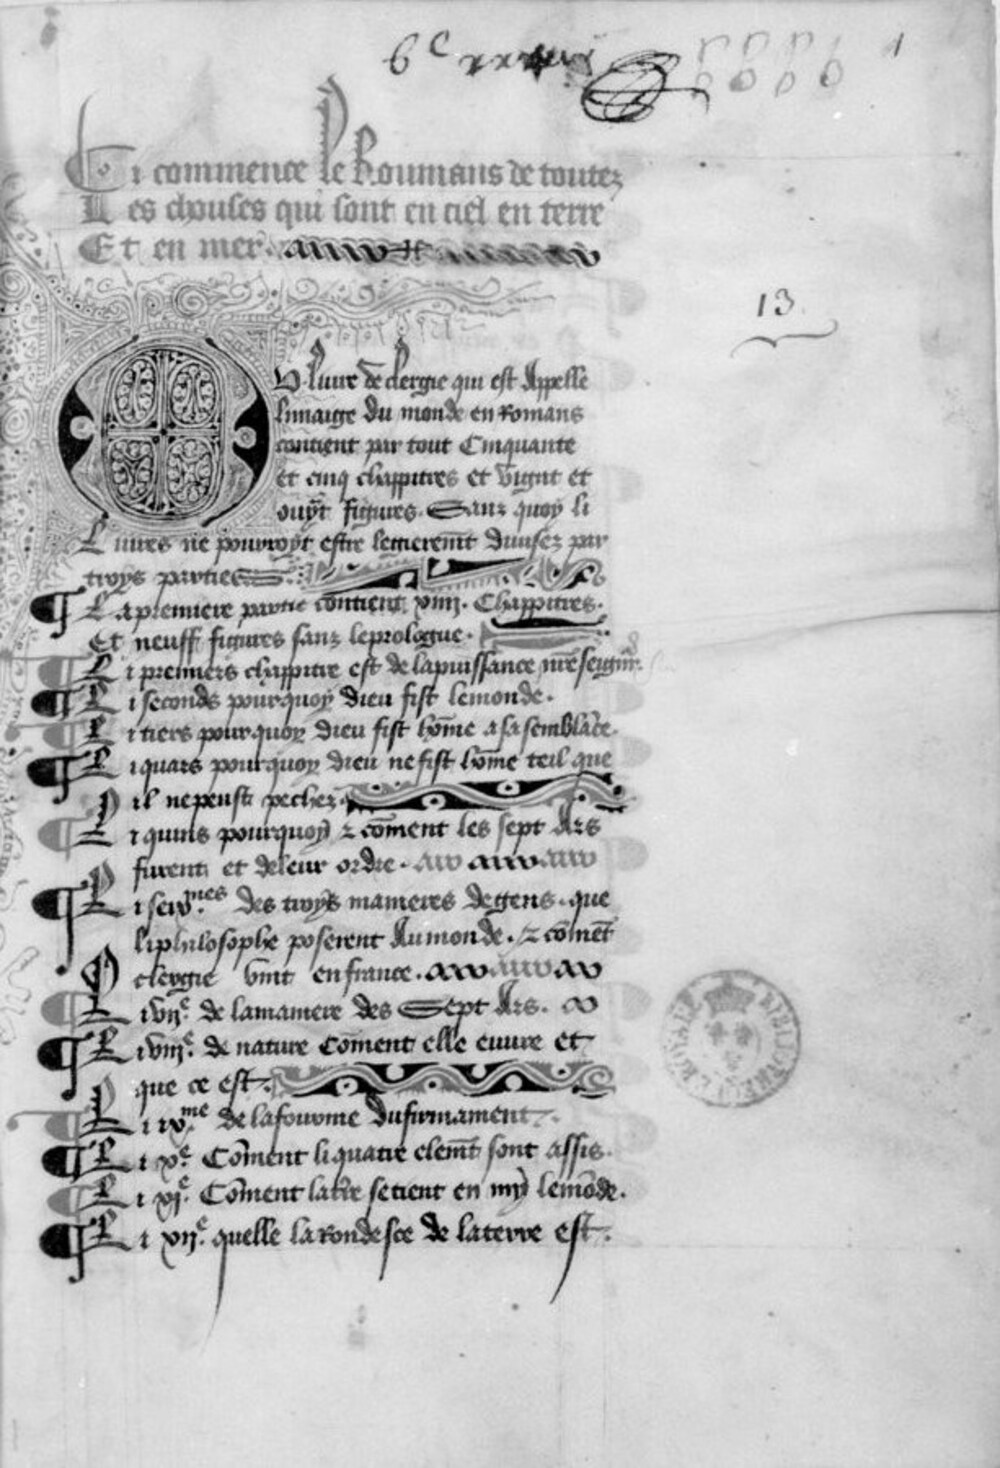 6c
1
Ci commence le Roumans de toutez
Les chouses qui sont en ciel en terre
Et en mer.
13
Ou livre de clergie qui est Appelle
limaige du monde en Romans
contient par tout Cinquante
et cinq chappitres et vignt et
ouyt figures. Sanz quoy li
Livres ne pourroyt estre legieremt divisez par
troys parties
La premiere partie contient xiiii. Chappitres.
Et neuff figures sanz le prologue.
Li premiers chappitre est de la puissance nre seignr.
Li seconds pourquoy dieu fist le monde.
Li tiers pourquoy dieu fist hōme a sa semblāce.
Li quars pourquoy dieu ne fist hōme teil que
il ne peust pecher.
Li quins pourquoy z cōment les sept Ars
furent et de leur ordre.
Li seixmes des troys manieres de gens. que
li philosophe poserent Au monde. z cōmēt
clergie vint en france.
Li viie. de la maniere des Sept Ars.
Li viiie. de nature Cōment elle euvre et
que ce est.
Li ixme de la fourme du firmament.
Li xe. Cōment li quatre elemt sont assis.
Li xie. Cōment la tre se tient en my le mōde.
Li xiie. quelle la Rondesce de la terre est.
BIBLIOTHECAE REGIAE